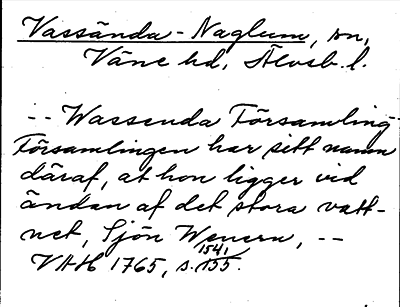 Vassända-Naglum, sn,
Väne hd, Älvsb. l.
-- Wassenda Församling
Församlingen har sitt namn
däraf, at hon ligger vid
ändan af det stora vatt-
net, Sjön Wenern, --
154,
VAH 1765, s. 155.